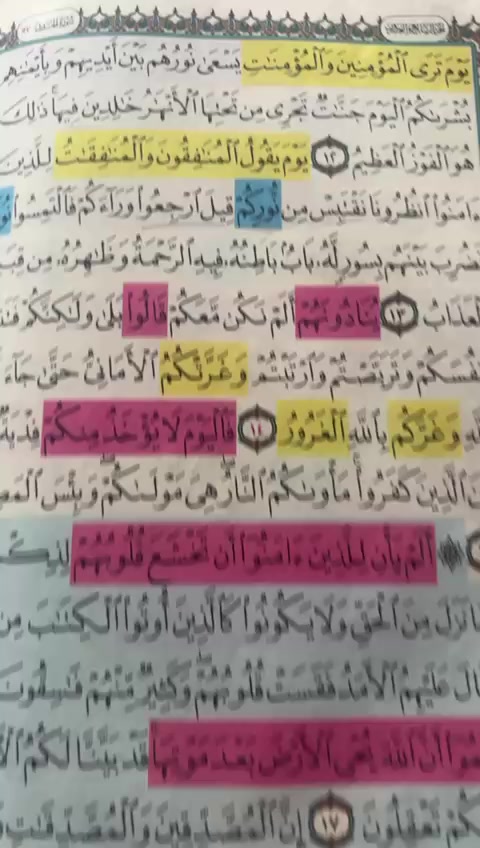 يَوْمَ تَرَى ٱلْمُؤْمِنِينَ وَٱلْمُؤْمِنَٰتِ يَسْعَىٰ نُورُهُم بَيْنَ أَيْدِيهِمْ وَبِأَيْمَٰنِهِم
بُشْرَىٰكُمُ ٱلْيَوْمَ جَنَّٰتٌ تَجْرِى مِن تَحْتِهَا ٱلْأَنْهَٰرُ خَٰلِدِينَ فِيهَا ذَٰلِكَ
هُوَ ٱلْفَوْزُ ٱلْعَظِيمُ ١٢ يَوْمَ يَقُولُ ٱلْمُنَٰفِقُونَ وَٱلْمُنَٰفِقَٰتُ لِلَّذِينَ
ءَامَنُوا۟ ٱنظُرُونَا نَقْتَبِسْ مِن نُّورِكُمْ قِيلَ ٱرْجِعُوا۟ وَرَآءَكُمْ فَٱلْتَمِسُوا۟
فَضُرِبَ بَيْنَهُم بِسُورٍ لَّهُۥ بَابٌۢ بَاطِنُهُۥ فِيهِ ٱلرَّحْمَةُ وَظَٰهِرُهُۥ مِن
ٱلْعَذَابُ ١٣ يُنَادُونَهُمْ أَلَمْ نَكُن مَّعَكُمْ قَالُوا۟ بَلَىٰ وَلَٰكِنَّكُمْ
أَنفُسَكُمْ وَتَرَبَّصْتُمْ وَٱرْتَبْتُمْ وَغَرَّتْكُمُ ٱلْأَمَانِىُّ حَتَّىٰ جَآءَ
وَغَرَّكُم بِٱللَّهِ ٱلْغَرُورُ ١٤ فَٱلْيَوْمَ لَا يُؤْخَذُ مِنكُمْ
ٱلَّذِينَ كَفَرُوا۟ مَأْوَىٰكُمُ ٱلنَّارُ هِىَ مَوْلَىٰكُمْ وَبِئْسَ
أَلَمْ يَأْنِ لِلَّذِينَ ءَامَنُوٓا۟ أَن تَخْشَعَ قُلُوبُهُمْ
نَزَلَ مِنَ ٱلْحَقِّ وَلَا يَكُونُوا۟ كَٱلَّذِينَ أُوتُوا۟ ٱلْكِتَٰبَ مِن
عَلَيْهِمُ ٱلْأَمَدُ فَقَسَتْ قُلُوبُهُمْ وَكَثِيرٌ مِّنْهُمْ فَٰسِقُونَ
أَنَّ ٱللَّهَ يُحْىِ ٱلْأَرْضَ بَعْدَ مَوْتِهَا قَدْ بَيَّنَّا لَكُمُ
تَعْقِلُونَ ١٧ إِنَّ ٱلْمُصَّدِّقِينَ وَٱلْمُصَّدِّقَٰتِ